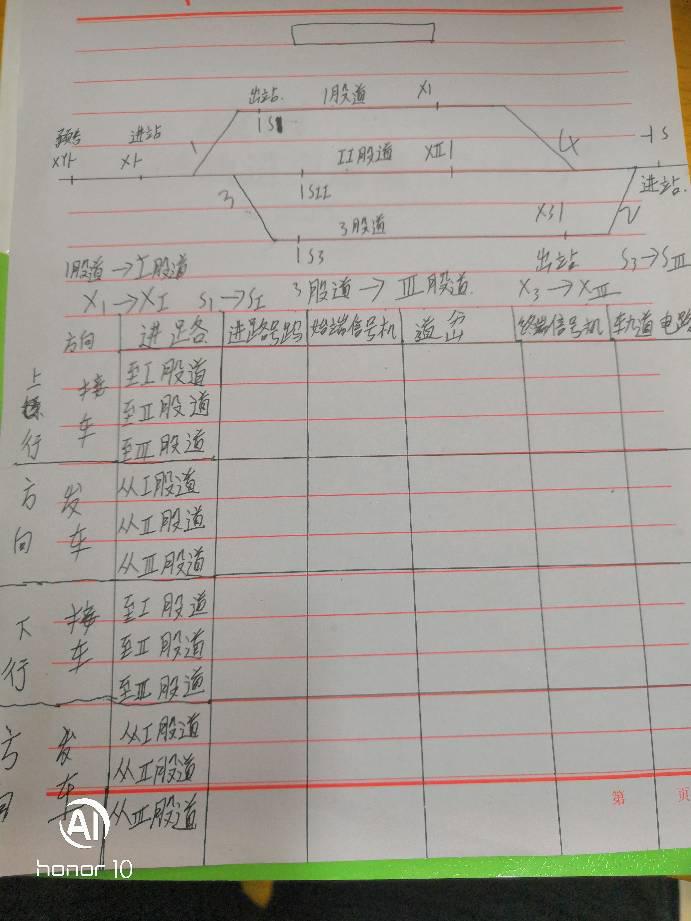 出站. 1股道 X1
S1
预告 进站 1 4 S
XY X II股道 XII
SII 进站.
3 3股道 X3 2
S3
1股道→I股道 出站 S3→SIII
X1→XI S1→SI 3股道→III股道. X3→XIII
方向 进路 进路号码 始端信号机 道岔 终端信号机 轨道电路
上行方向 接车 至I股道
至II股道
至III股道
发车 从I股道
从II股道
从III股道
下行方向 接车 至I股道
至II股道
至III股道
发车 从I股道
从II股道
从III股道
第 页
AI
honor 10